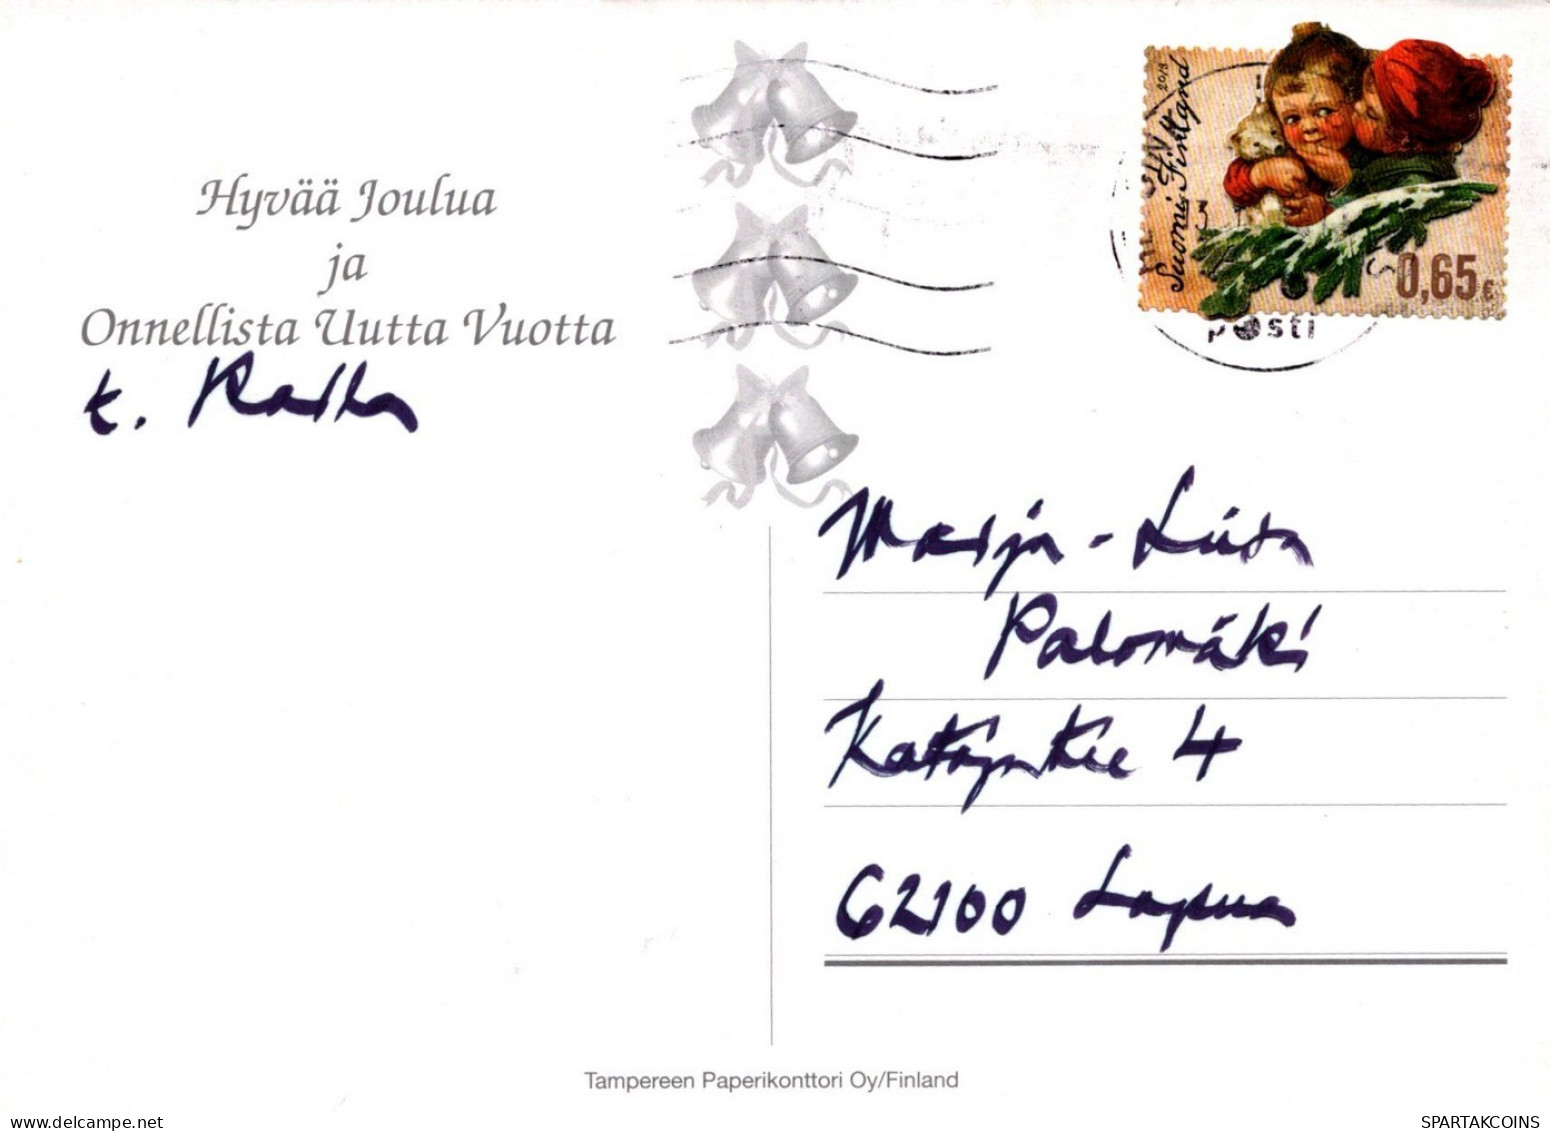 Hyvää Joulua
ja
Onnellista Uutta Vuotta
t. Raiha
2013
Suomi Finland
0,65 €
posti
Marja-Liisa
Palomäki
Katajatie 4
62100 Lapua
Tampereen Paperikonttori Oy/Finland
SPARTAKCOINS